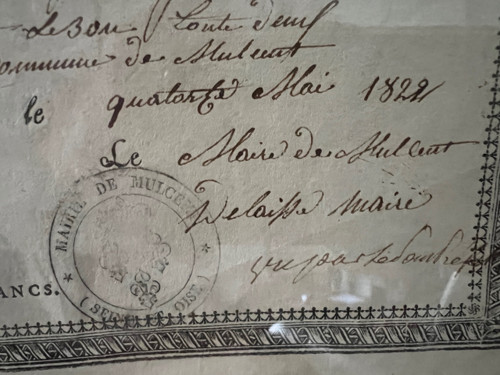 Le Bon
Commune de Mulcent
le quatorze Mai 1822
Le Maire de Mulcent
Delaisse Maire
vu par
MAIRIE DE MULCENT
(SEINE ET OISE)
ANCS.